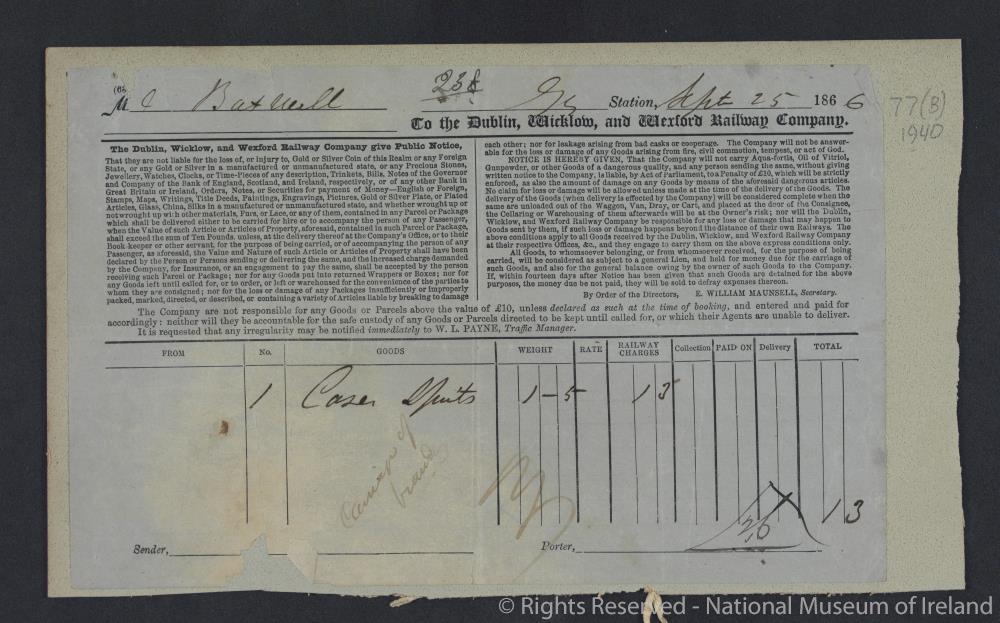 238
M Boxwell
Station, Sept 25 1866
77(B)
1940
To the Dublin, Wicklow, and Wexford Railway Company.
The Dublin, Wicklow, and Wexford Railway Company give Public Notice,
That they are not liable for the loss of, or injury to, Gold or Silver Coin of this Realm or any Foreign
State, or any Gold or Silver in a manufactured or unmanufactured state, or any Precious Stones,
Jewellery, Watches, Clocks, or Time-Pieces of any description, Trinkets, Bills, Notes of the Governor
and Company of the Bank of England, Scotland, and Ireland, respectively, or of any other Bank in
Great Britain or Ireland, Orders, Notes, or Securities for payment of Money—English or Foreign,
Stamps, Maps, Writings, Title Deeds, Paintings, Engravings, Pictures, Gold or Silver Plate, or Plated
Articles, Glass, China, Silks in a manufactured or unmanufactured state, and whether wrought up or
not wrought up with other materials, Furs, or Lace, or any of them, contained in any Parcel or Package
which shall be delivered either to be carried for hire or to accompany the person of any Passenger,
when the Value of such Article or Articles of Property, aforesaid, contained in such Parcel or Package,
shall exceed the sum of Ten Pounds, unless, at the delivery thereof at the Company's Office, or to their
Book keeper or other servant, for the purpose of being carried, or of accompanying the person of any
Passenger, as aforesaid, the Value and Nature of such Article or Articles of Property shall have been
declared by the Person or Persons sending or delivering the same, and the increased charge demanded
by the Company, for Insurance, or an engagement to pay the same, shall be accepted by the person
receiving such Parcel or Package; nor for any Goods put into returned Wrappers or Boxes; nor for
any Goods left until called for, or to order, or left or warehoused for the convenience of the parties to
whom they are consigned; nor for the loss or damage of any Packages insufficiently or improperly
packed, marked, directed, or described, or containing a variety of Articles liable by breaking to damage
each other; nor for leakage arising from bad casks or cooperage. The Company will not be answer-
able for the loss or damage of any Goods arising from fire, civil commotion, tempest, or act of God.
NOTICE IS HEREBY GIVEN, That the Company will not carry Aqua-fortis, Oil of Vitriol,
Gunpowder, or other Goods of a dangerous quality, and any person sending the same, without giving
written notice to the Company, is liable, by Act of Parliament, to a Penalty of £10, which will be strictly
enforced, as also the amount of damage on any Goods by means of the aforesaid dangerous articles.
No claim for loss or damage will be allowed unless made at the time of the delivery of the Goods. The
delivery of the Goods (when delivery is effected by the Company) will be considered complete when the
same are unloaded out of the Waggon, Van, Dray, or Cart, and placed at the door of the Consignee,
the Cellaring or Warehousing of them afterwards will be at the Owner's risk; nor will the Dublin,
Wicklow, and Wexford Railway Company be responsible for any loss or damage that may happen to
Goods sent by them, if such loss or damage happens beyond the distance of their own Railways. The
above conditions apply to all Goods received by the Dublin, Wicklow, and Wexford Railway Company
at their respective Offices, &c., and they engage to carry them on the above express conditions only.
All Goods, to whomsoever belonging, or from whomsoever received, for the purpose of being
carried, will be considered as subject to a general Lien, and held for money due for the carriage of
such Goods, and also for the general balance owing by the owner of such Goods to the Company.
If, within fourteen days after Notice has been given that such Goods are detained for the above
purposes, the money due be not paid, they will be sold to defray expenses thereon.
By Order of the Directors, E. WILLIAM MAUNSELL, Secretary.
The Company are not responsible for any Goods or Parcels above the value of £10, unless declared as such at the time of booking, and entered and paid for
accordingly: neither will they be accountable for the safe custody of any Goods or Parcels directed to be kept until called for, or which their Agents are unable to deliver.
It is requested that any irregularity may be notified immediately to W. L. PAYNE, Traffic Manager.
FROM No. GOODS WEIGHT RATE RAILWAY CHARGES Collection PAID ON Delivery TOTAL
1 Case Spirits 1-5 1 3
Carriage of
26 1 3
Sender, Porter,
© Rights Reserved - National Museum of Ireland